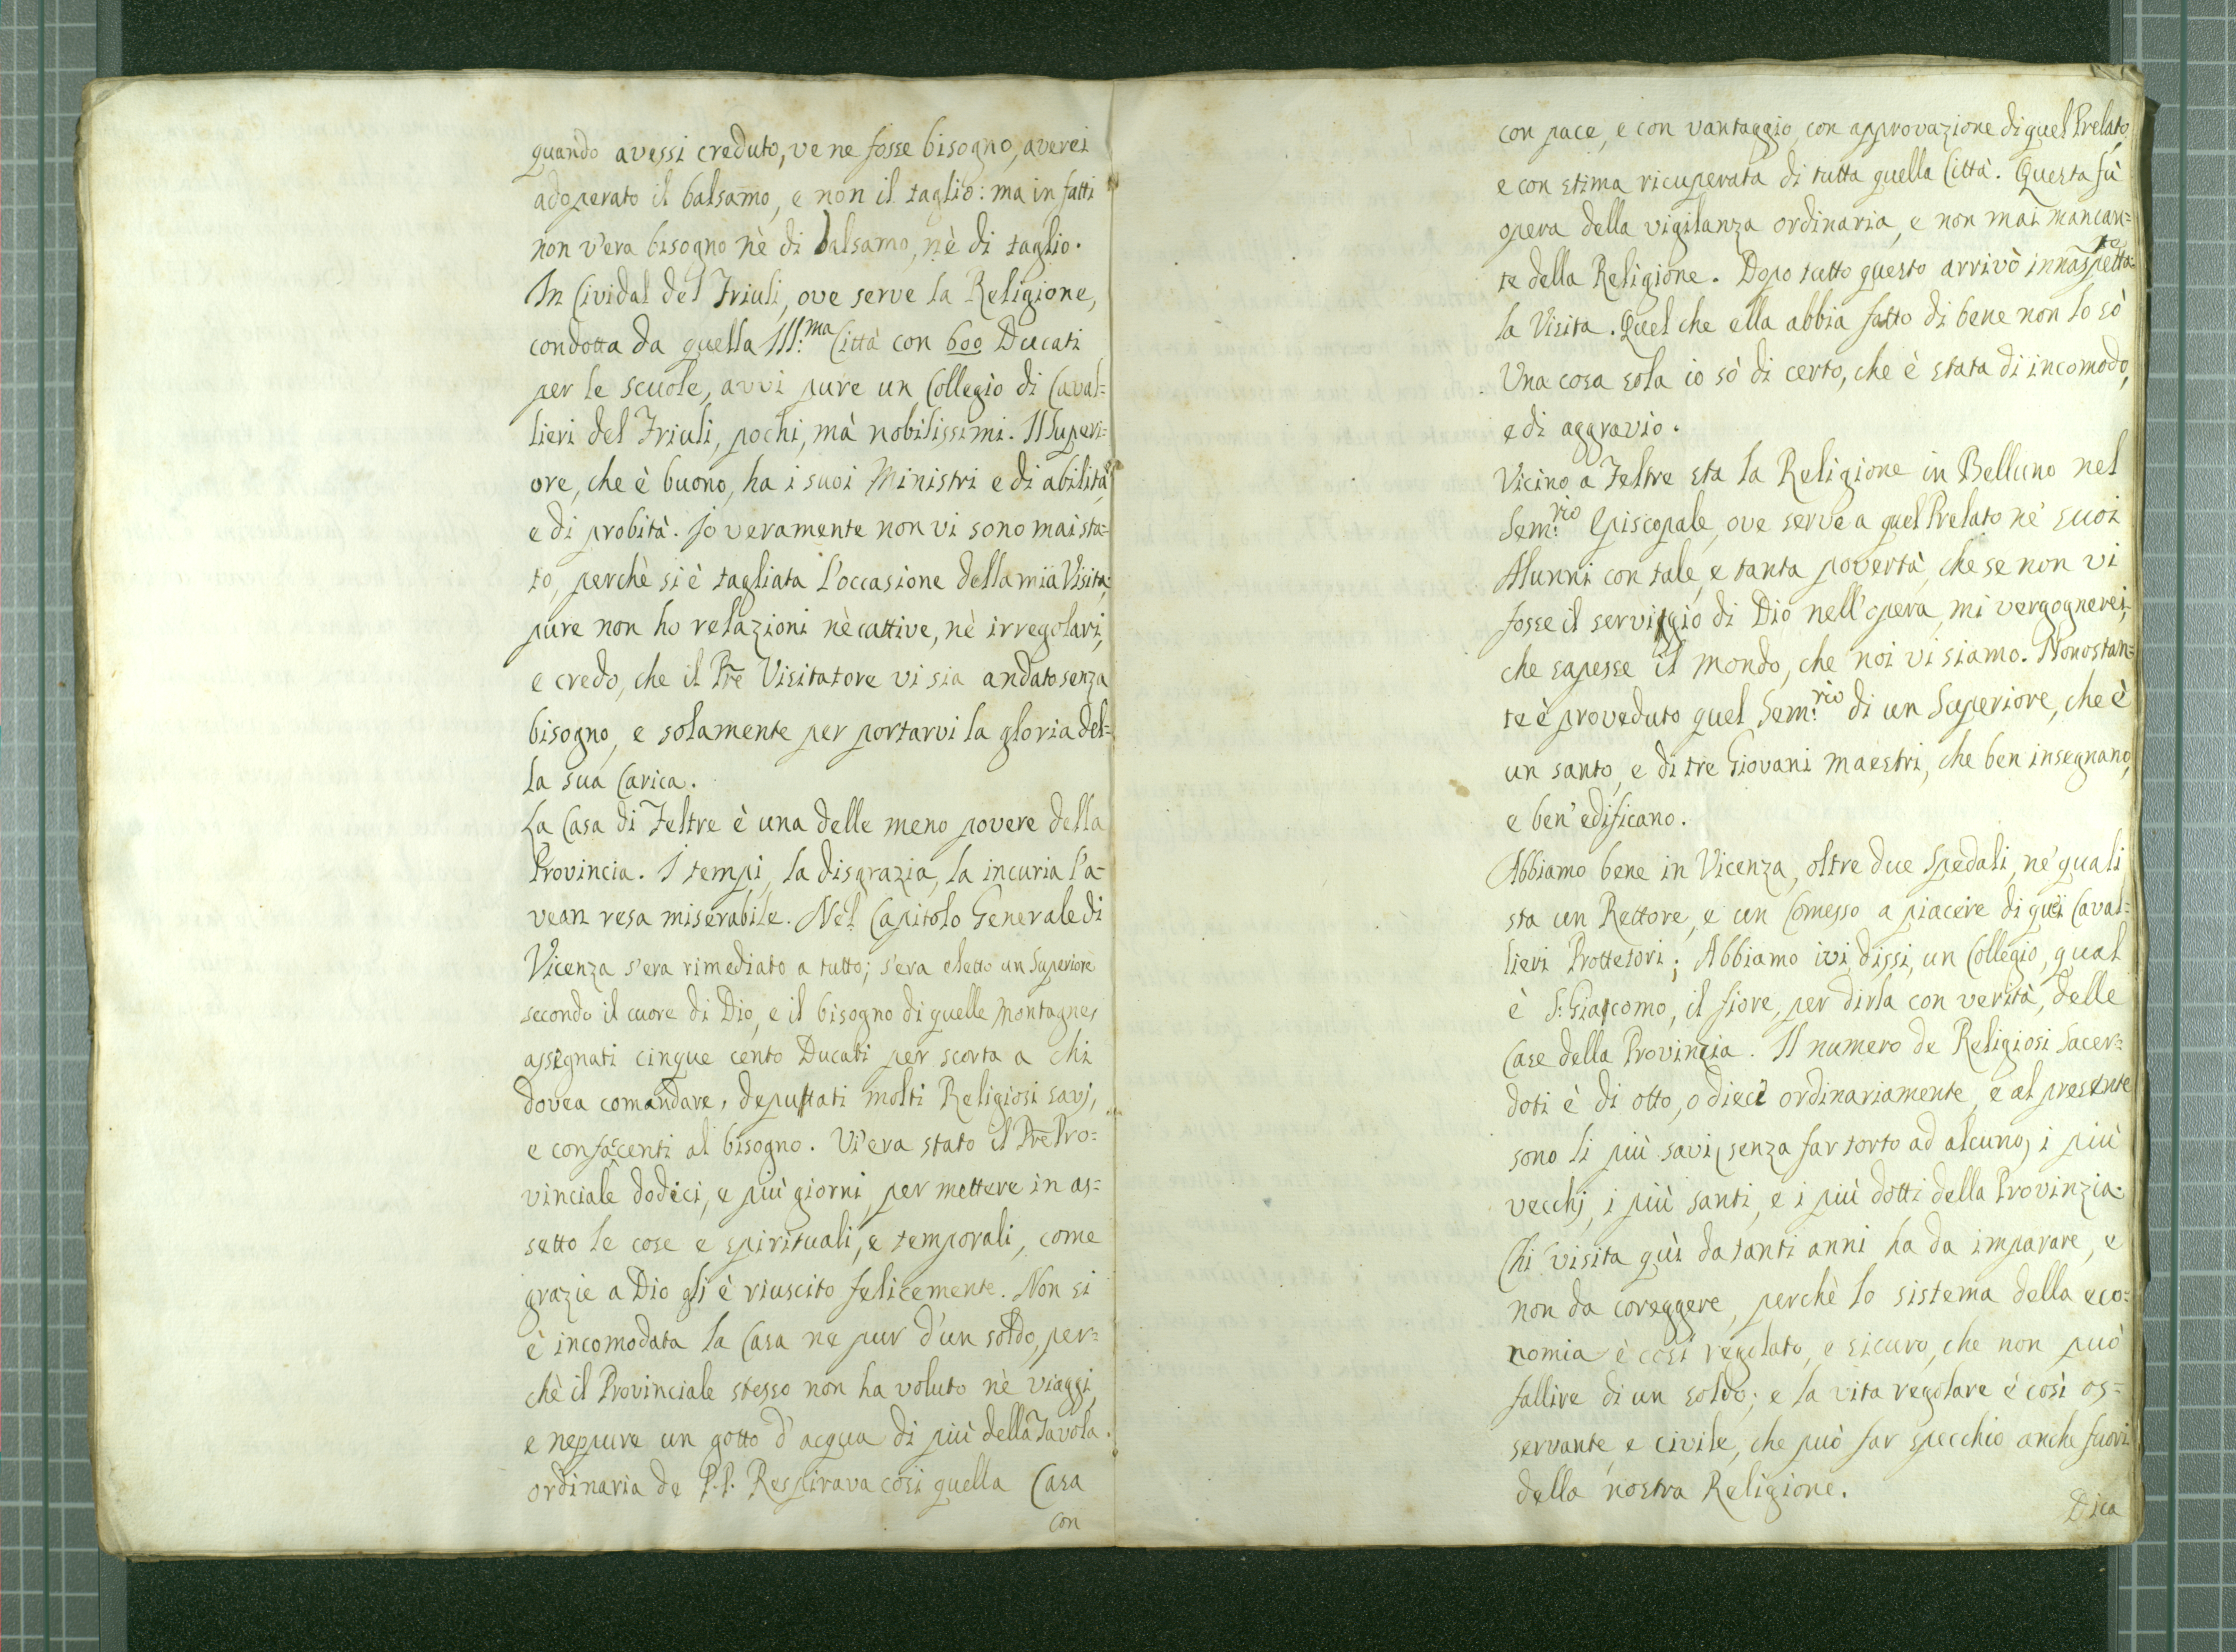 quando avessi creduto, ve ne fosse bisogno, averei
adoperato il balsamo, e non il taglio: ma in fatti
non v'era bisogno nè di balsamo, nè di taglio.
In Cividal del Friuli, ove serve la Religione,
condotta da quella Ill:ma Città con 600 Ducati
per le scuole, avvi pure un Collegio di Caval=
lieri del Friuli, pochi, mà nobilissimi. Il Superi=
ore, che è buono, ha i suoi Ministri e di abilità,
e di probità. Io veramente non vi sono mai sta=
to, perchè si è tagliata l'occasione della mia Visita;
pure non ho relazioni nè cattive, nè irregolari,
e credo, che il Pre Visitatore vi sia andato senza
bisogno, e solamente per portarvi la gloria del=
la sua Carica.
La Casa di Feltre è una delle meno povere della
Provincia. I tempi, la disgrazia, la incuria l'a=
vean resa miserabile. Nel Capitolo Generale di
Vicenza s'era rimediato a tutto; s'era eletto un Superiore
secondo il cuore di Dio, e il bisogno di quelle Montagne,
assegnati cinque cento Ducati per scorta a chi
dovea comandare, deputati molti Religiosi savj,
e confacenti al bisogno. Vi era stato il Pre Pro=
vinciale dodeci, e più giorni, per mettere in as=
setto le cose e spirituali, e temporali, come
grazie a Dio gli è riuscito felicemente. Non si
è incomodata la Casa ne pur d'un soldo, per=
chè il Provinciale stesso non ha voluto nè viaggi,
e neppure un gotto d'acqua di più della Tavola
ordinaria de P.P. Respirava così quella Casa
con
con pace, e con vantaggio, con approvazione di quel Prelato,
e con stima ricuperata di tutta quella Città. Questa fù
opera della vigilanza ordinaria, e non mai mancan=
te della Religione. Dopo tutto questo arrivò innaspetta=
la Visita. Quel che ella abbia fatto di bene non lo sò
Una cosa sola io sò di certo, che è stata di incomodo,
e di aggravio.
Vicino a Feltre sta la Religione in Belluno nel
Sem:rio Episcopale, ove serve a quel Prelato ne' suoi
Alunni con tale, e tanta povertà, che se non vi
fosse il serviggio di Dio nell'opera, mi vergognerei,
che sapesse il mondo, che noi vi siamo. Nonostan=
te è proveduto quel Sem:rio di un Superiore, che è
un santo, e di tre Giovani maestri, che ben insegnano,
e ben' edificano.
Abbiamo bene in Vicenza, oltre due Spedali, ne' quali
sta un Rettore, e un Comesso a piacere di quei Caval=
lieri Prottetori; Abbiamo ivi, dissi, un Collegio, qual
è S: Giacomo, il fiore, per dirla con verità, delle
Case della Provinzia. Il numero de Religiosi Sacer=
doti è di otto, o dieci ordinariamente, e al presente
sono li più savi, senza far torto ad alcuno, i più
vecchj, i più santi, e i più dotti della Provinzia.
Chi visita quì da tanti anni ha da imparare, e
non da coreggere, perchè lo sistema della eco=
nomia è così regolato, e sicuro, che non può
fallire di un soldo; e la vita regolare è così os=
servante, e civile, che può far specchio anche fuori
della nostra Religione.
Dica